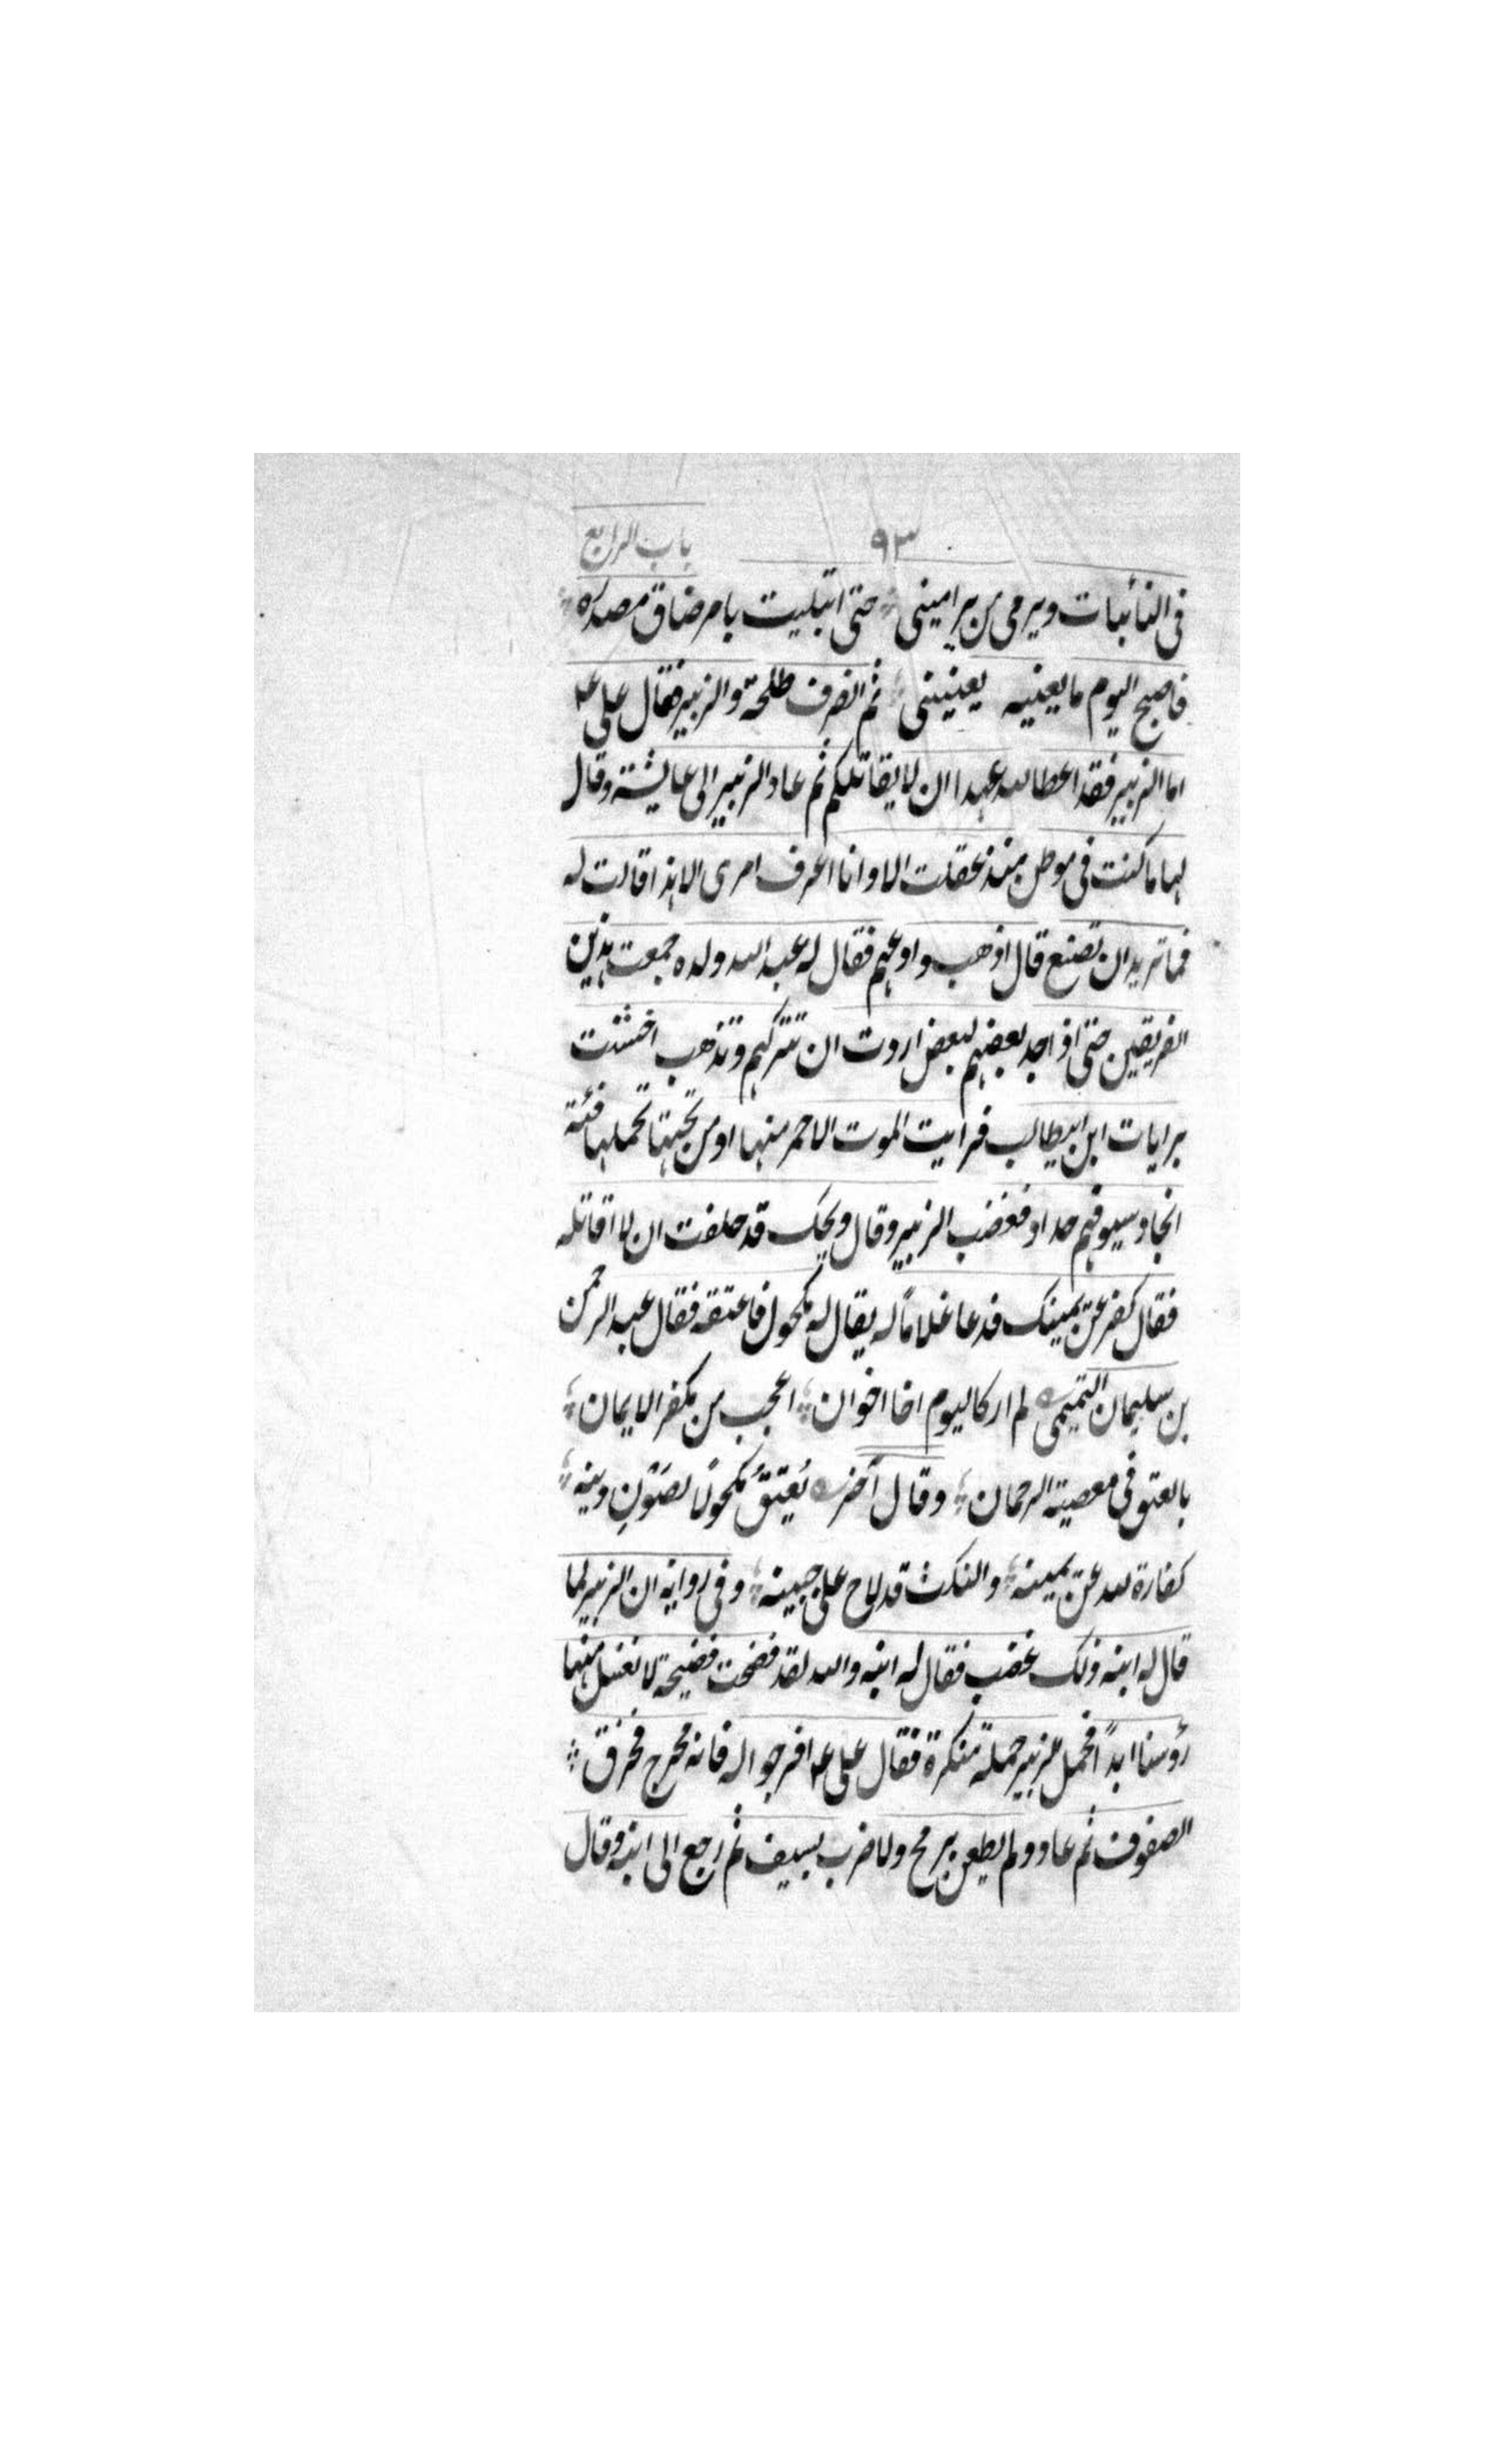 ٩٣ باب الرابع
فى النائبات ويرمى من يرامينى حتى ابتليت بامر ضاق مصدره
فاصبح اليوم ما يعنيه يعنينى ثم انصرف طلحة والزبير فقال على عم
اما الزبير فقد اعطا لله عهدا ان لا يقاتلكم ثم عاد الزبير الى عايشة وقال
لها ما كنت فى موطن منذ عقلت الا وانا اعرف امرى الا هذا قالت له
فما تريد ان تصنع قال اذهب وادعهم فقال له عبد الله ولده جمعت هذين
الفريقين حتى اذا جد بعضهم لبعض اردت ان تتركهم وتذهب اخشت
برايات ابن ابيطالب فرايت الموت الاحمر منها او من تحتها تحملها فئة
انجاد سيوفهم حداد فغضب الزبير وقال ويحك قد حلفت ان لا اقاتله
فقال كفر عن يمينك فدعا غلاماً له يقال له مكحول فاعتقه فقال عبد الرحمن
بن سليمان التميمى لم ار كاليوم اخا اخوان اعجب من مكفر الايمان
بالعتق فى معصية الرحمان وقال آخر يُعتِقُ مكحولًا لصَوْنِ دينه
كفارة لله عن يمينه والنكث قد لاح على جبينه وفى رواية ان الزبير لما
قال له ابنه ذلك غضب فقال له ابنه والله لقد فضحت فضيحة لا نغسل منها
رؤسنا ابداً فحمل الزبير حملة منكرة فقال على عم افرجوا له فانه محرج فخرق
الصفوف ثم عاد ولم يطعن برمح ولا ضرب بسيف ثم رجع الى ابنه وقال